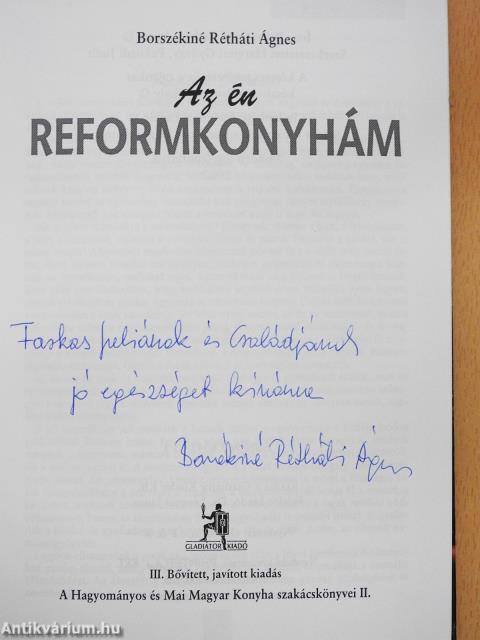 Borszékiné Rétháti Ágnes
Az én
REFORMKONYHÁM
Farkas Juliának és Családjának
jó egészséget kívánva
Borszékiné Rétháti Ágnes
GLADIÁTOR KIADÓ
III. Bővített, javított kiadás
A Hagyományos és Mai Magyar Konyha szakácskönyvei II.
Antikvárium.hu